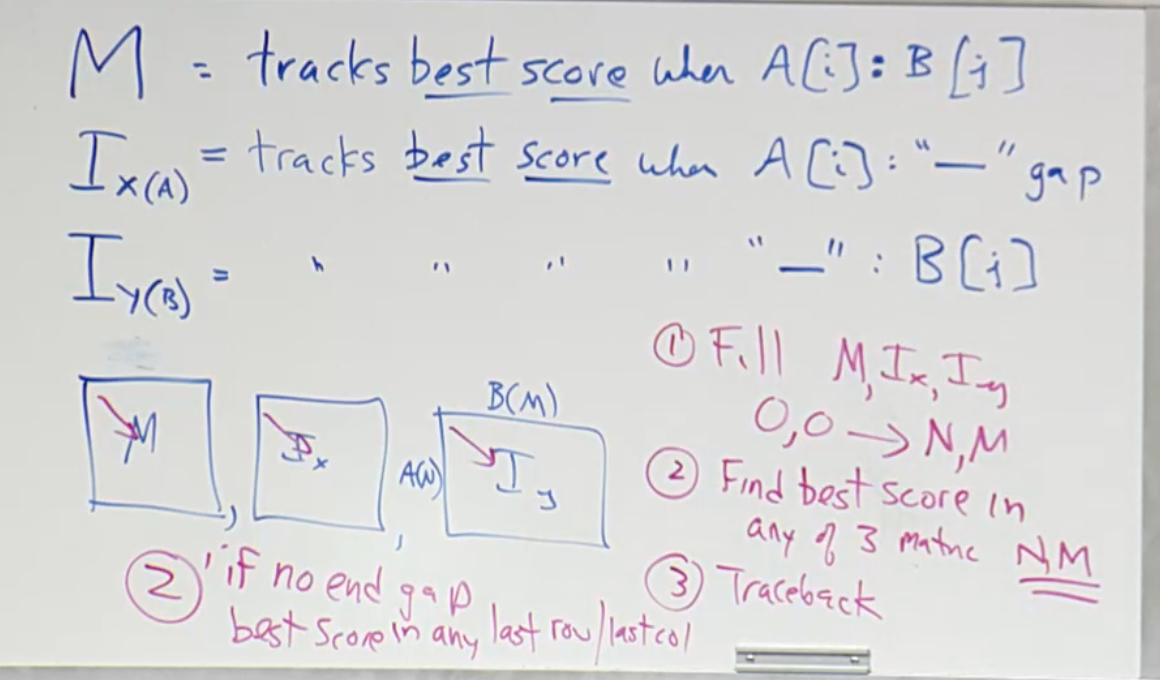 M = tracks best score when A[i] : B[j]
I x(A) = tracks best score when A[i] : "—" gap
I y(B) = " " " " "—" : B[j]
① Fill M, Ix, Iy
0,0 → N,M
② Find best score in
any of 3 matric N,M
③ Traceback
M , Ix , A(N) Iy
B(M)
②' if no end gap
best score in any last row/last col